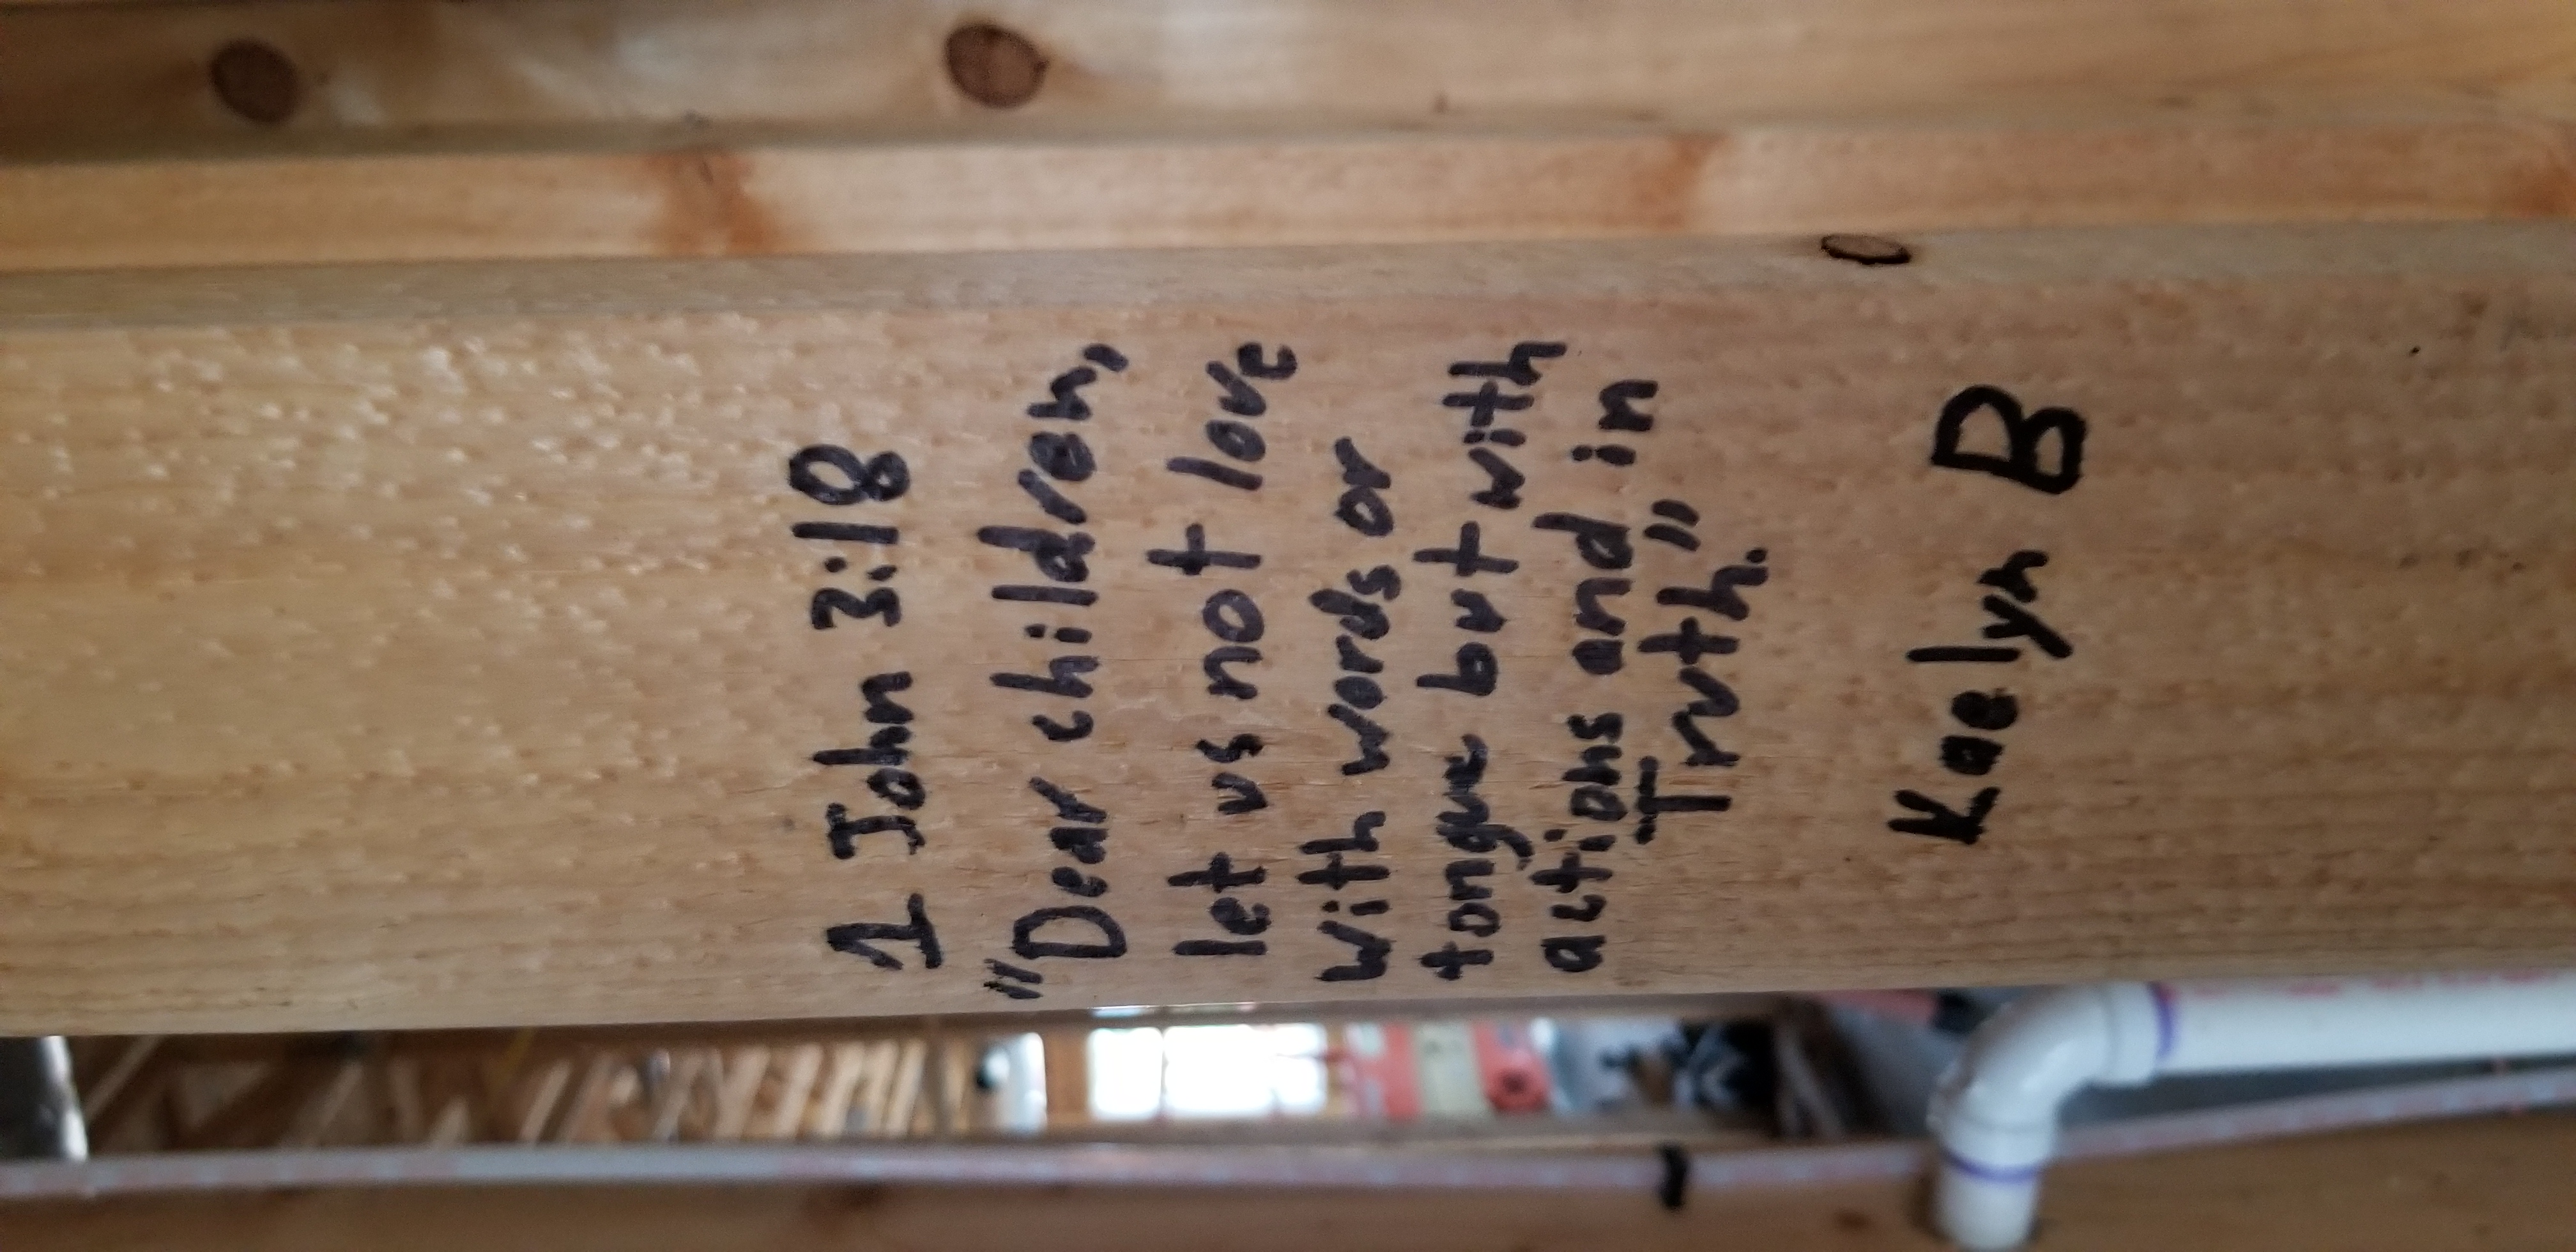 1 John 3:18
"Dear children,
let us not love
with words or
tongue but with
actions and in
Truth."
Kaelyn B